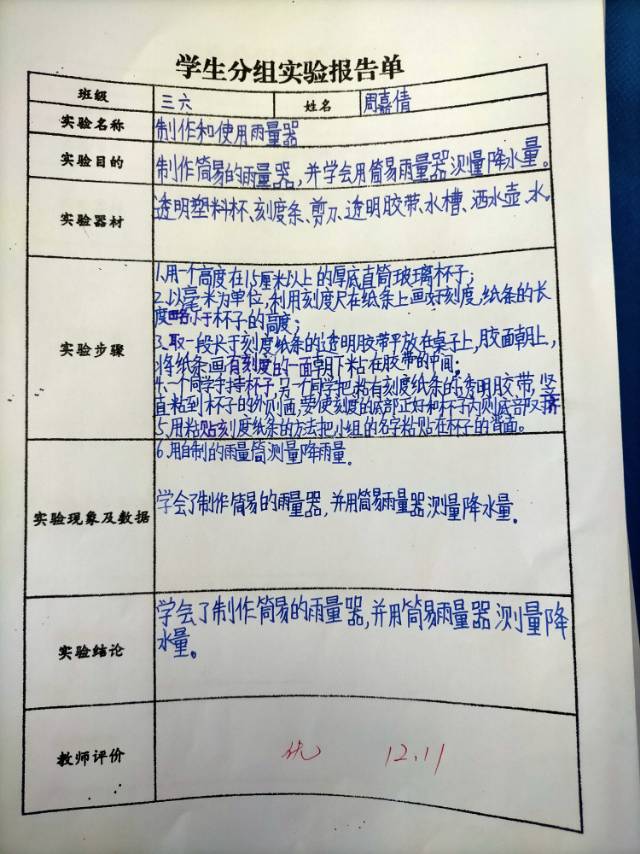 学生分组实验报告单
班级 三六 姓名 周嘉倩
实验名称 制作和使用雨量器
实验目的 制作简易的雨量器,并学会用简易雨量器测量降水量。
实验器材 透明塑料杯、刻度条、剪刀、透明胶带、水槽、洒水壶、水。
实验步骤
1.用一个高度在15厘米以上的厚底直筒玻璃杯子;
2.以毫米为单位,利用刻度尺在纸条上画好刻度,纸条的长
度略小于杯子的高度;
3.取一段长于刻度纸条的透明胶带平放在桌子上,胶面朝上,
将纸条画有刻度的一面朝下粘在胶带的中间;
4.一个同学手持杯子,另一个同学把粘有刻度纸条的透明胶带,竖
直粘到杯子的外侧面,要使刻度的底部正好和杯子内侧底部对齐
5.用粘贴刻度纸条的方法把小组的名字粘贴在杯子的背面。
6.用自制的雨量筒测量降雨量。
实验现象及数据 学会了制作简易的雨量器,并用简易雨量器测量降水量。
实验结论 学会了制作简易的雨量器,并用简易雨量器测量降
水量。
教师评价 优 12.11